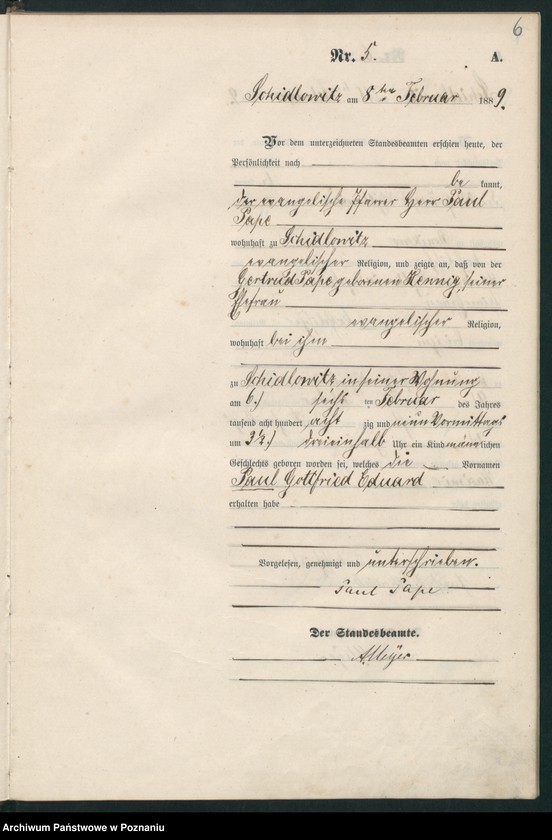 6
Nr. 5. A.
Schidlowitz am 8ten Februar 1889.
Vor dem unterzeichneten Standesbeamten erschien heute, der
Persönlichkeit nach
be kannt,
der evangelische Pfarrer Herr Paul
Pape
wohnhaft zu Schidlowitz
evangelischer Religion, und zeigte an, daß von der
Gertrud Pape geborenen Hennig, seiner
Ehefrau
evangelischer Religion,
wohnhaft bei ihm
zu Schidlowitz in seiner Wohnung
am 6.) sechs ten Februar des Jahres
tausend acht hundert acht zig und neun Vormittags
um 3½.) dreieinhalb Uhr ein Kind männlichen
Geschlechts geboren worden sei, welches die Vornamen
Paul Gottfried Eduard
erhalten habe
Vorgelesen, genehmigt und unterschrieben.
Paul Pape
Der Standesbeamte.
Archiwum Państwowe w Poznaniu